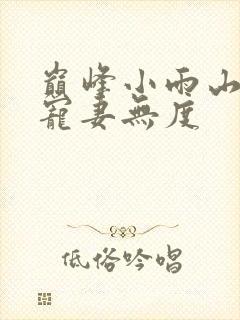 巅峰小雨山
宠妻無度
低俗吟唱